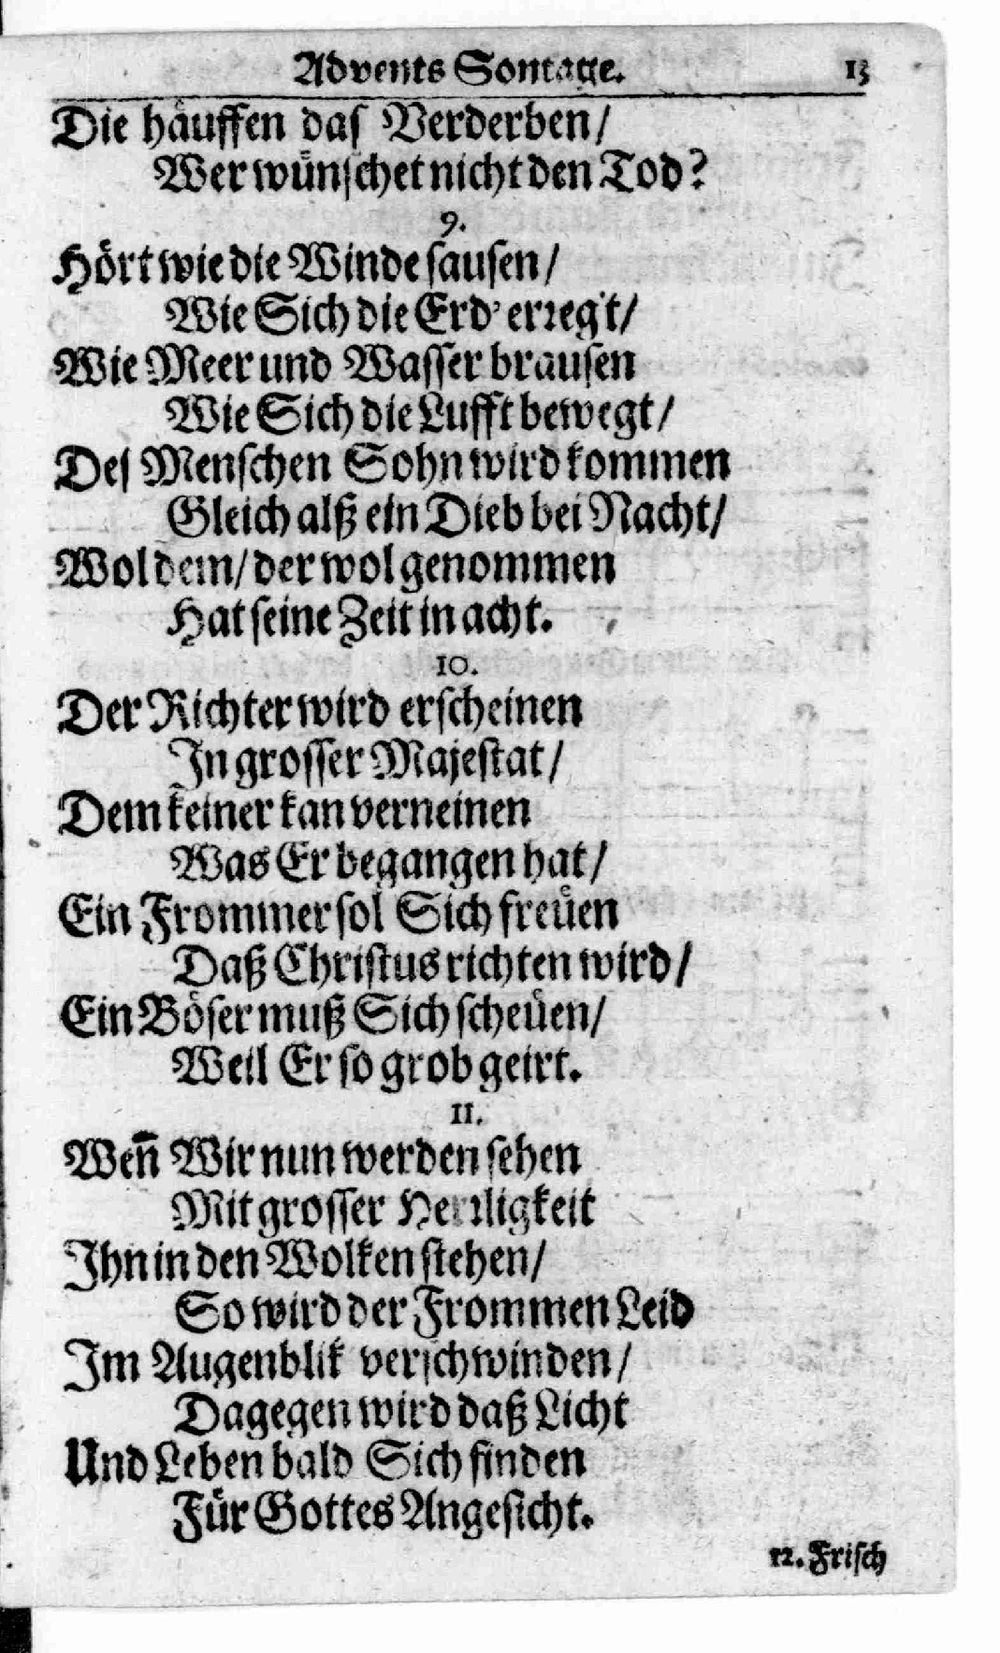 Advents Sontage. 13
Die häuffen das Verderben/
Wer wünschet nicht den Tod?
9.
Hört wie die Winde sausen/
Wie Sich die Erd' erregt/
Wie Meer und Wasser brausen
Wie Sich die Lufft bewegt/
Des Menschen Sohn wird kommen
Gleich alß ein Dieb bei Nacht/
Wol dem/ der wol genommen
Hat seine Zeit in acht.
10.
Der Richter wird erscheinen
In grosser Majestat/
Dem keiner kan verneinen
Was Er begangen hat/
Ein Frommer sol Sich freüen
Daß Christus richten wird/
Ein Böser muß Sich scheüen/
Weil Er so grob geirt.
11.
Weñ Wir nun werden sehen
Mit grosser Herrligkeit
Ihn in den Wolken stehen/
So wird der Frommen Leid
Im Augenblik verschwinden/
Dagegen wird daß Licht
Und Leben bald Sich finden
Für Gottes Angesicht.
12. Frisch